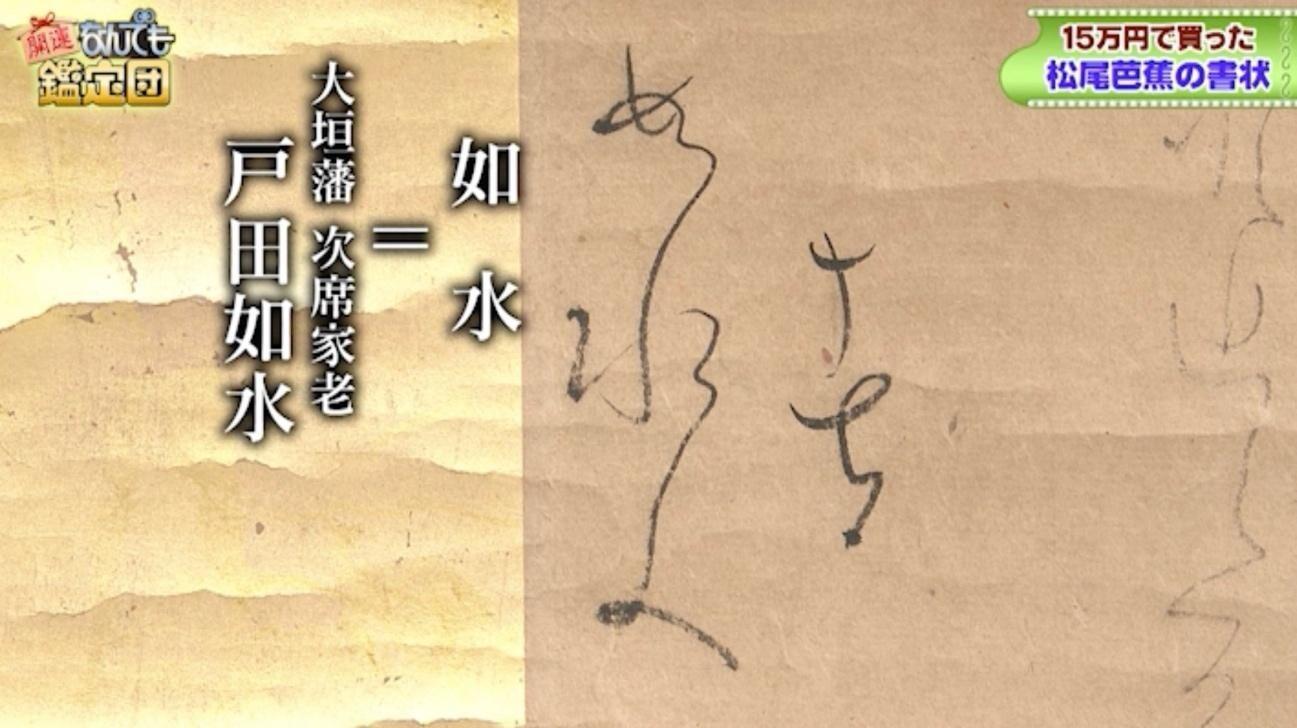 開運
なんでも
鑑定団
15万円で買った
松尾芭蕉の書状
如水
＝
大垣藩 次席家老
戸田如水
十七
如水